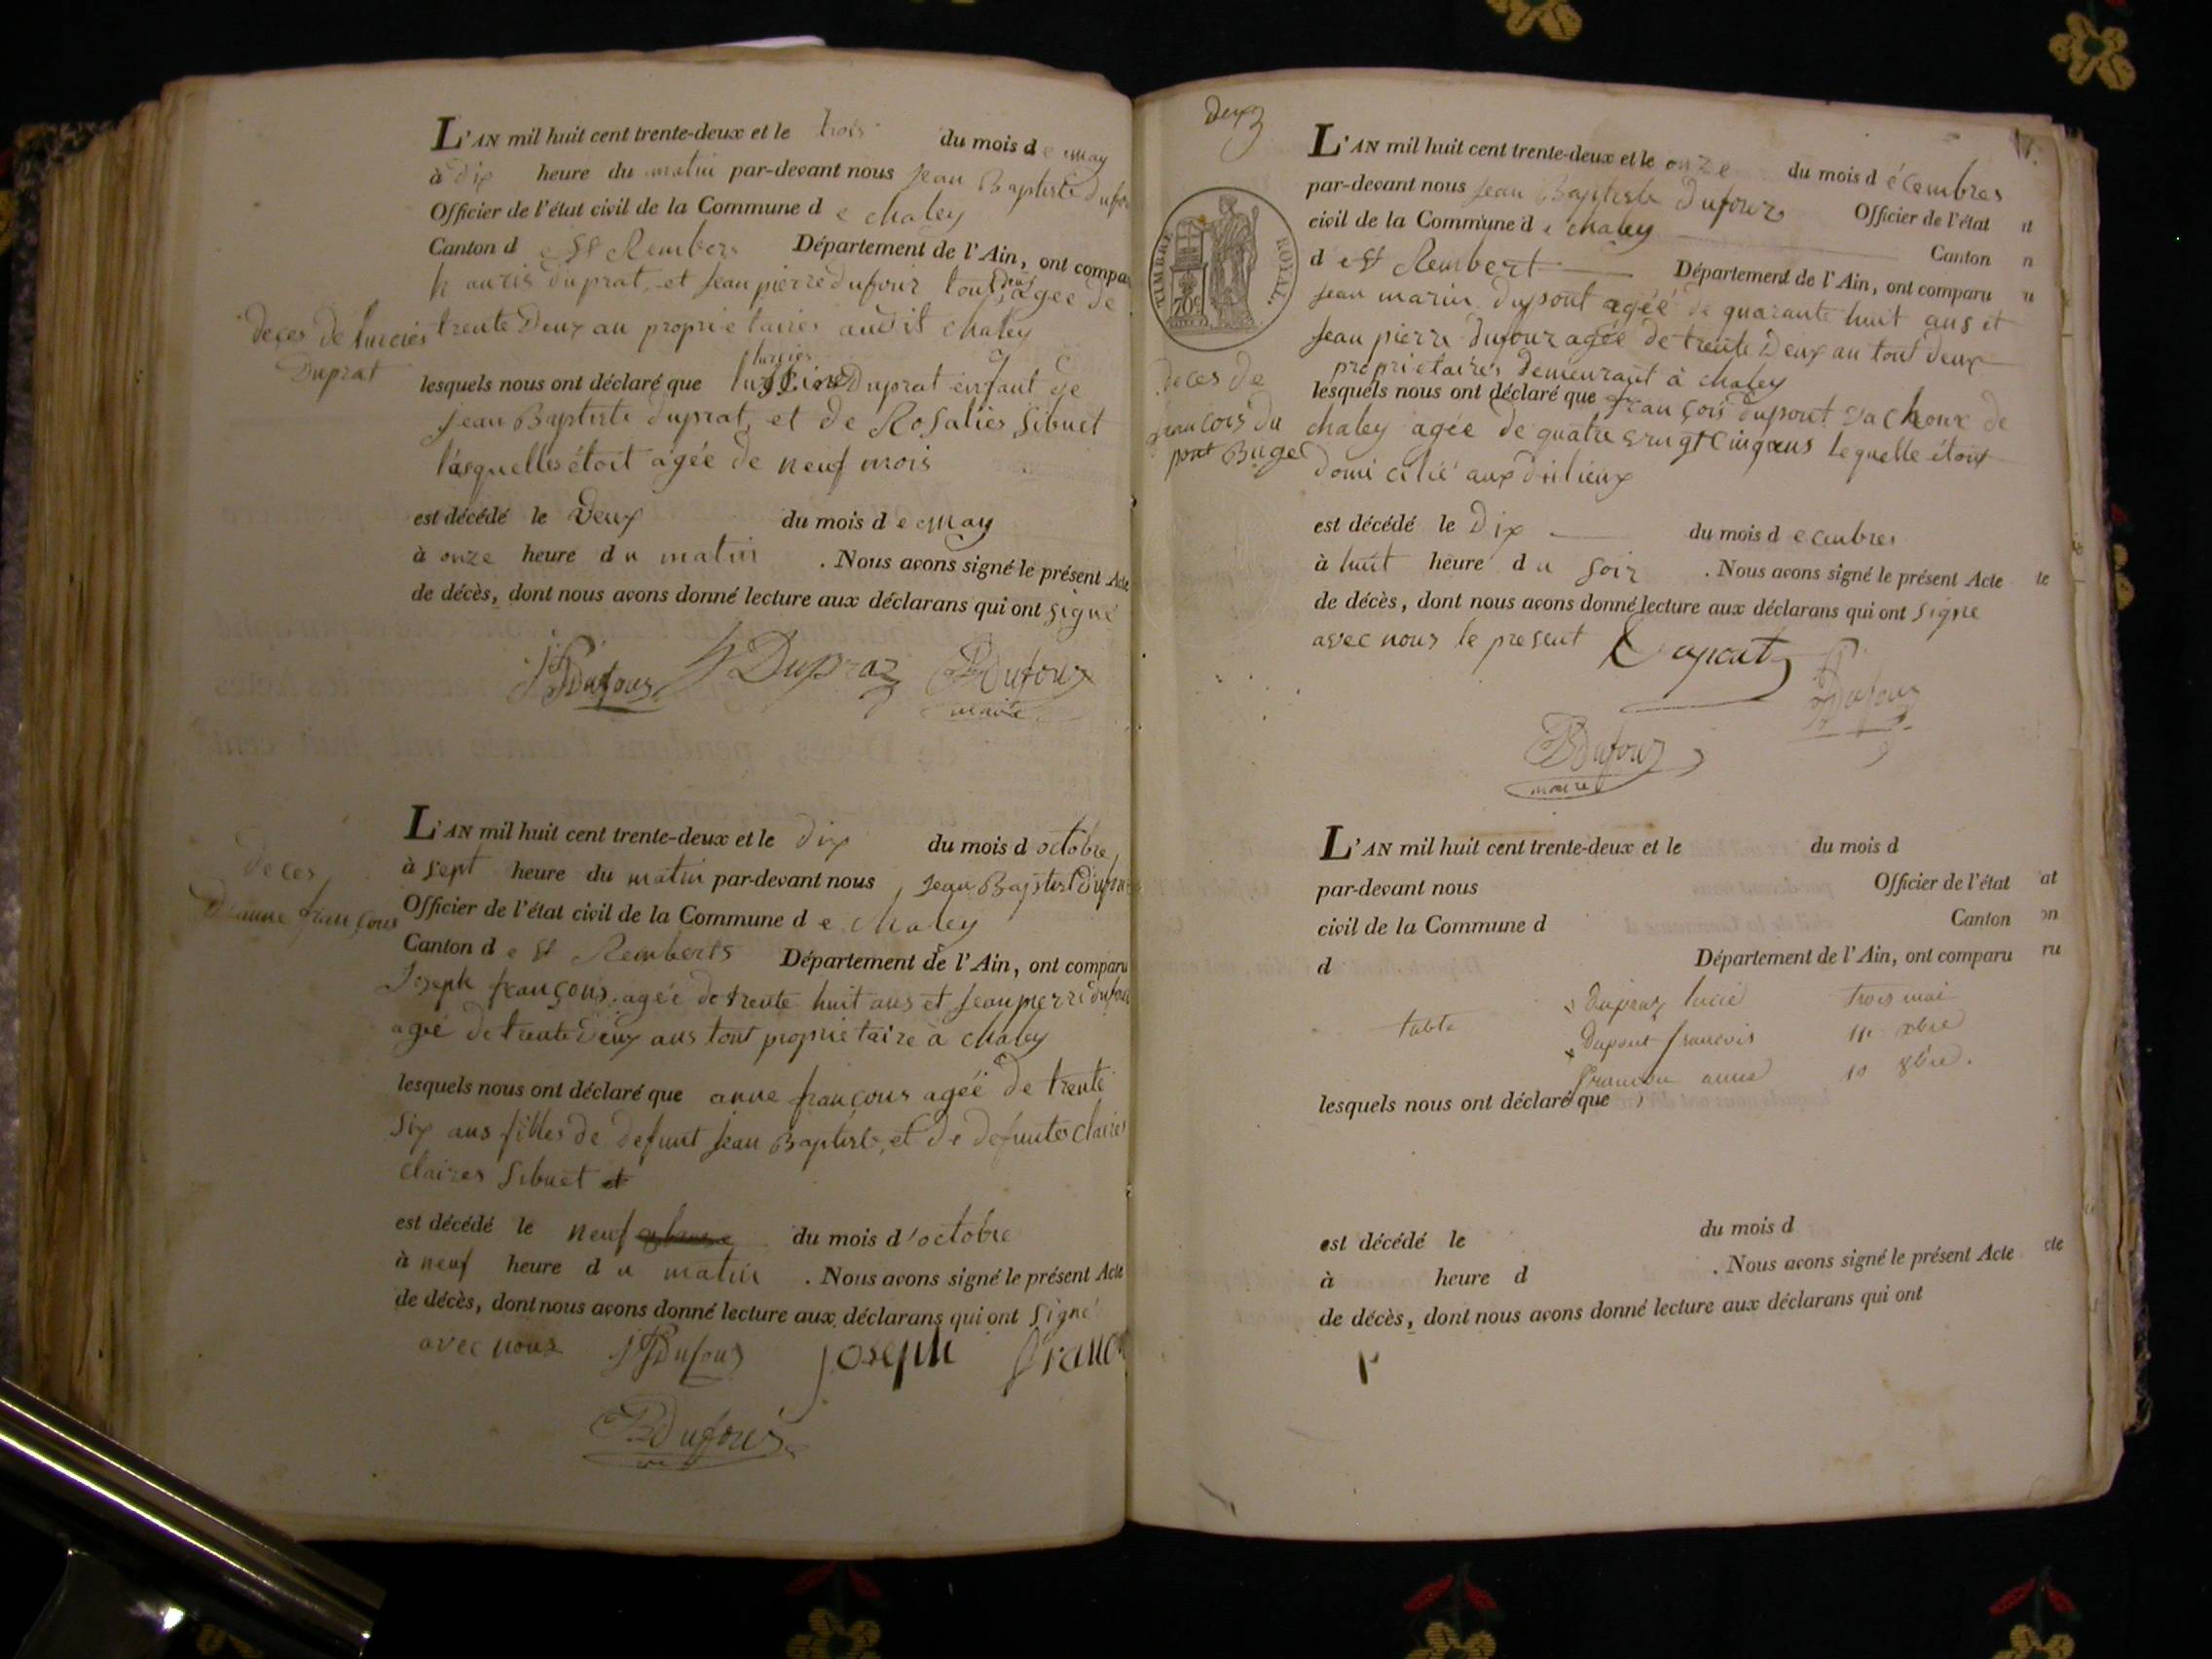 L'AN mil huit cent trente-deux et le trois du mois de may
à dix heure du matin par-devant nous jean Baptiste dufour
Officier de l'état civil de la Commune de chaley
Canton de St Rembers Département de l'Ain, ont comparu
duprat, et jean pierre dufour tout deux agée de
trente Deux an proprietaires audit chaley
deces de lucies
Duprat
lesquels nous ont déclaré que lucies Duprat enfant de
jean Baptiste duprat, et de Rosalies Sibuet
lasquelles étoit agée de neuf mois
est décédé le Deux du mois de may
à onze heure du matin . Nous avons signé le présent Acte
de décès, dont nous avons donné lecture aux déclarans qui ont signé
JP Dufour Dupraz JB Dufour
maire
L'AN mil huit cent trente-deux et le dix du mois d octobre
à sept heure du matin par-devant nous Jean Baptist Dufour
Officier de l'état civil de la Commune de chaley
Canton de St Remberts Département de l'Ain, ont comparu
deces
D'anne françons
Joseph françons agée de trente huit ans et jean pierre dufour
agée de trente Deux ans tout proprietaire à chaley
lesquels nous ont déclaré que anne françons agéé de trente
six ans filles de defunt jean Baptiste, et de defuntes claires
claires Sibuet et
est décédé le neuf du mois d'octobre
à neuf heure du matin . Nous avons signé le présent Acte
de décès, dont nous avons donné lecture aux déclarans qui ont signé
avec nous JP Dufour joseph françon
JB Dufour
Deux
17.
L'AN mil huit cent trente-deux et le onze du mois décembres
par-devant nous jean Baptiste Dufour Officier de l'état
civil de la Commune de chaley Canton
de St Rembert Département de l'Ain, ont comparu
TIMBRE ROYAL.
70c
jean marin dupont agéé de quarante huit ans et
jean pierre Dufour agée de trente Deux an tout deux
proprietaires Demeurant à chaley
deces de
françois du
pont Buget
lesquels nous ont déclaré que françois dupont de
chaley agée de quatre vingt cinq ans Lequelle étoit
domicilié aux dit lieux
est décédé le Dix du mois d ecembres
à huit heure du soir . Nous avons signé le présent Acte
de décès, dont nous avons donné lecture aux déclarans qui ont signé
avec nous le present
JP Dufour
JB Dufour
maire
L'AN mil huit cent trente-deux et le du mois d
par-devant nous Officier de l'état
civil de la Commune d Canton
d Département de l'Ain, ont comparu
table
Dupraz lucie trois mai
Dupont francois 11 xbre
françon anne 10 8bre.
lesquels nous ont déclaré que
est décédé le du mois d
à heure d . Nous avons signé le présent Acte
de décès, dont nous avons donné lecture aux déclarans qui ont